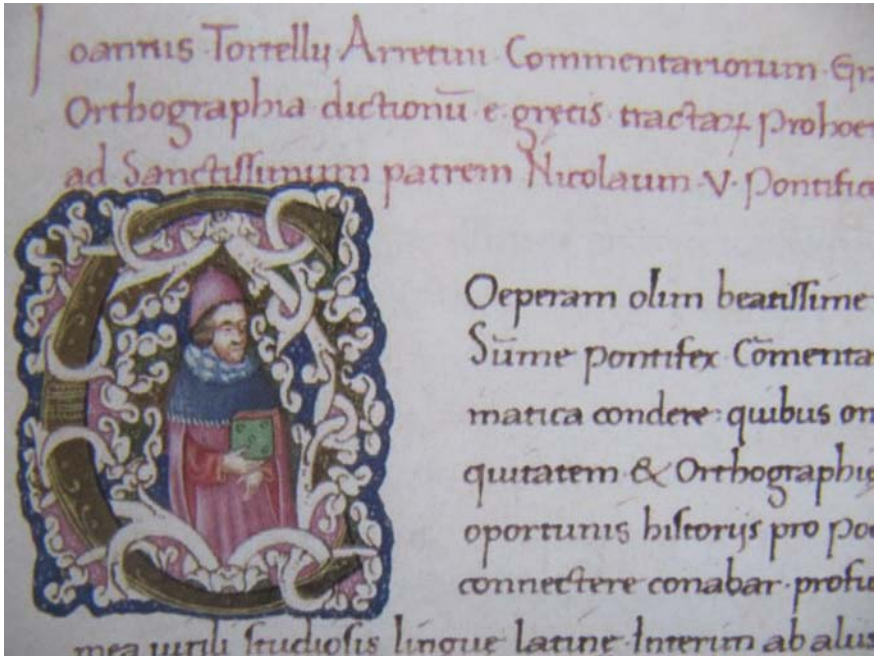 Ioannis Tortelly Arretini Commentariorum Gra
Orthographia dictionū e gręcis tractaꝝ Prohoe
ad Sanctissimum patrem Nicolaum V Pontific
Coeperam olim beatissime
Sūme pontifex Cōmenta
matica condere: quibus om
quitatem & Orthographię
oportunis historijs pro poe
connectere conabar profu
mea uirili studiosis linguę latinę Interim ab alus